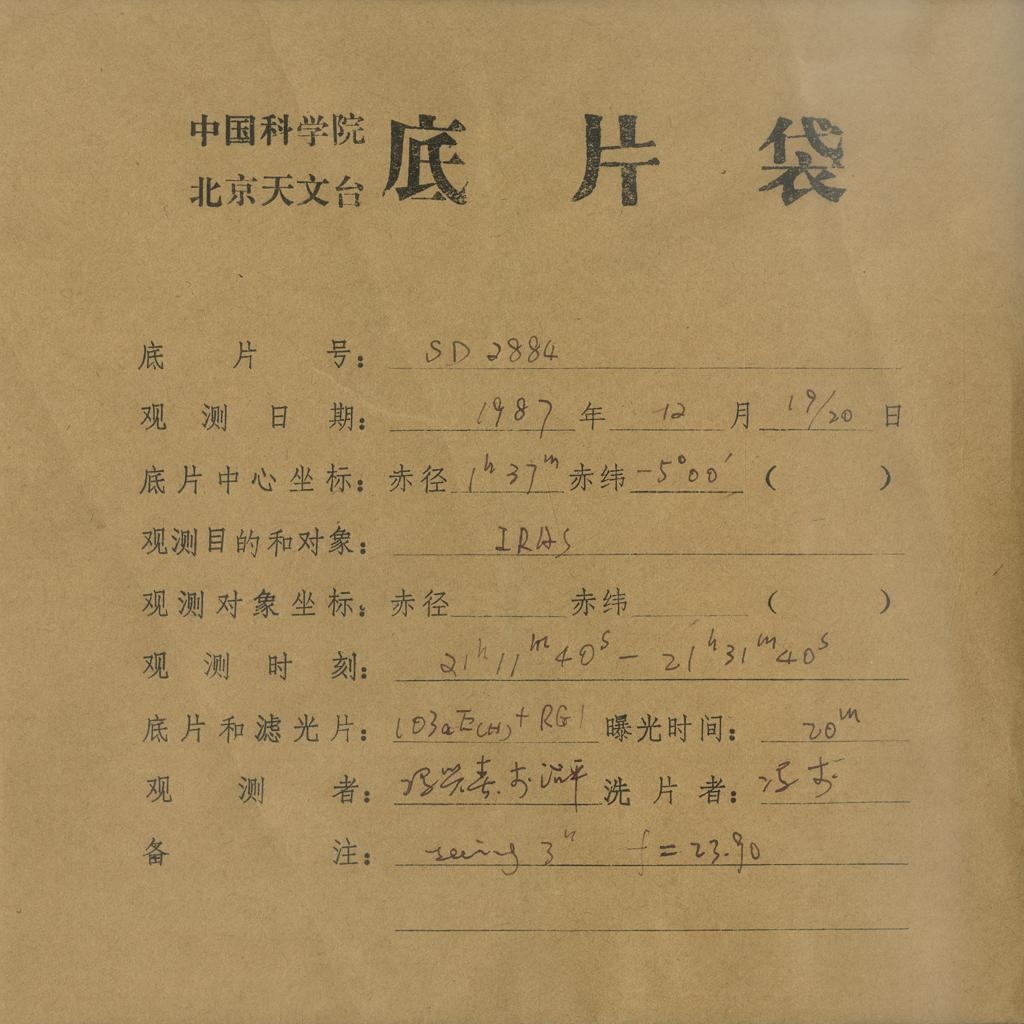 中国科学院
北京天文台 底片袋
底片号: SD 2884
观测日期: 1987 年 12 月 19/20 日
底片中心坐标: 赤径 1ʰ 37ᵐ 赤纬 -5°00′ ( )
观测目的和对象: IRAS
观测对象坐标: 赤径 赤纬 ( )
观测时刻: 21ʰ 11ᵐ 40ˢ - 21ʰ 31ᵐ 40ˢ
底片和滤光片: 103aE(H)+RG1 曝光时间: 20ᵐ
观测者: 洗片者:
备注: seeing 3" f = 23.90